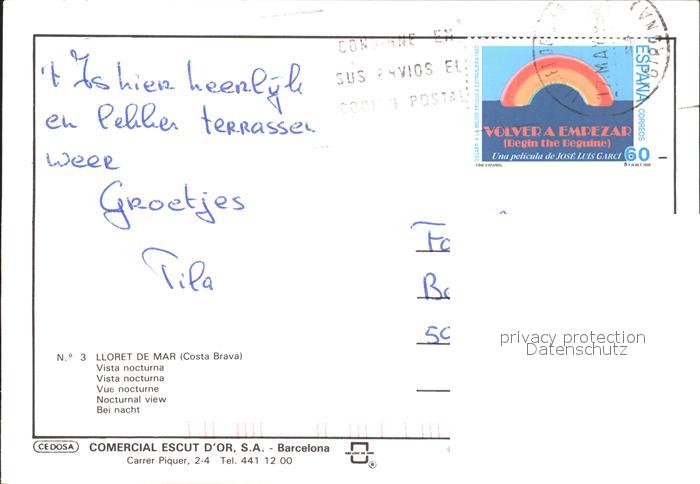 't Is hier heerlijk
en lekker terrassen
weer
Groetjes
Tila
SUS ENVIOS EL
POSTAL
ESPAÑA
CORREOS
VOLVER A EMPEZAR
(Begin the Beguine)
Una película de JOSÉ LUIS GARCÍ
60
CINE ESPAÑOL
Fa
Ba
50
privacy protection
Datenschutz
N.º 3 LLORET DE MAR (Costa Brava)
Vista nocturna
Vista notturna
Vue nocturne
Nocturnal view
Bei nacht
CEDOSA COMERCIAL ESCUT D'OR, S.A. - Barcelona
Carrer Piquer, 2-4 Tel. 441 12 00